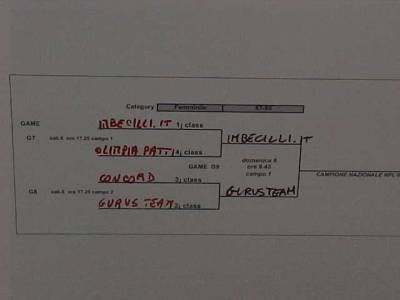 Category Femminile 87-88
GAME IMBECILLI.IT 1¡ class
G7 sab.8 ore 17.25 campo 1 IMBECILLI.IT
OLIMPIA PATTI 4¡ class
GAME G9 domenica 9
ore 9.45
CONCORD 3¡ class campo 1
CAMPIONE NAZIONALE
G8 sab.8 ore 17.25 campo 2 GURUSTEAM
GURUS TEAM 2¡ class